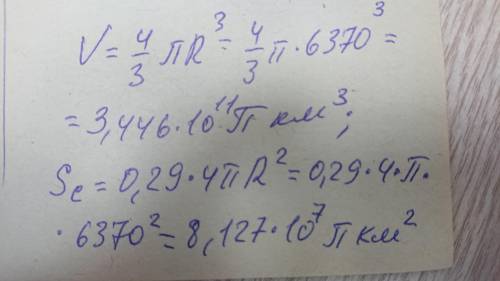 V = 4/3 πR³ = 4/3 π · 6370³ =
= 3,446 · 10¹¹ π км³;
Sс = 0,29 · 4πR² = 0,29 · 4 · π ·
· 6370² = 8,127 · 10⁷ π км²